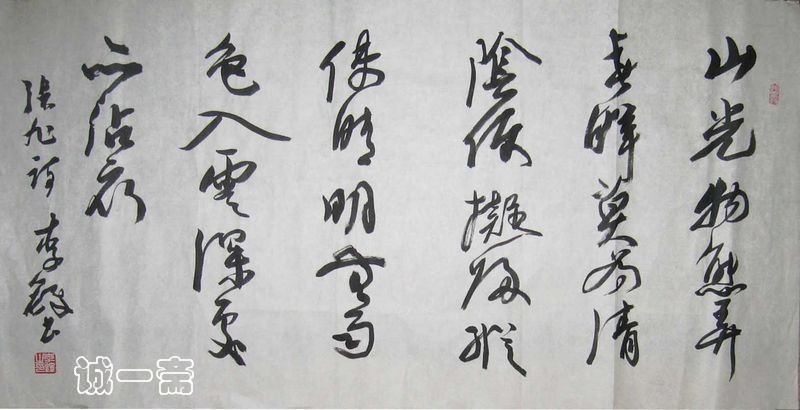 山光物態弄
春暉莫為清
陰便擬歸縱
使晴明無雨
色入雲深處
亦沾衣
張旭詩 李書
诚一斋